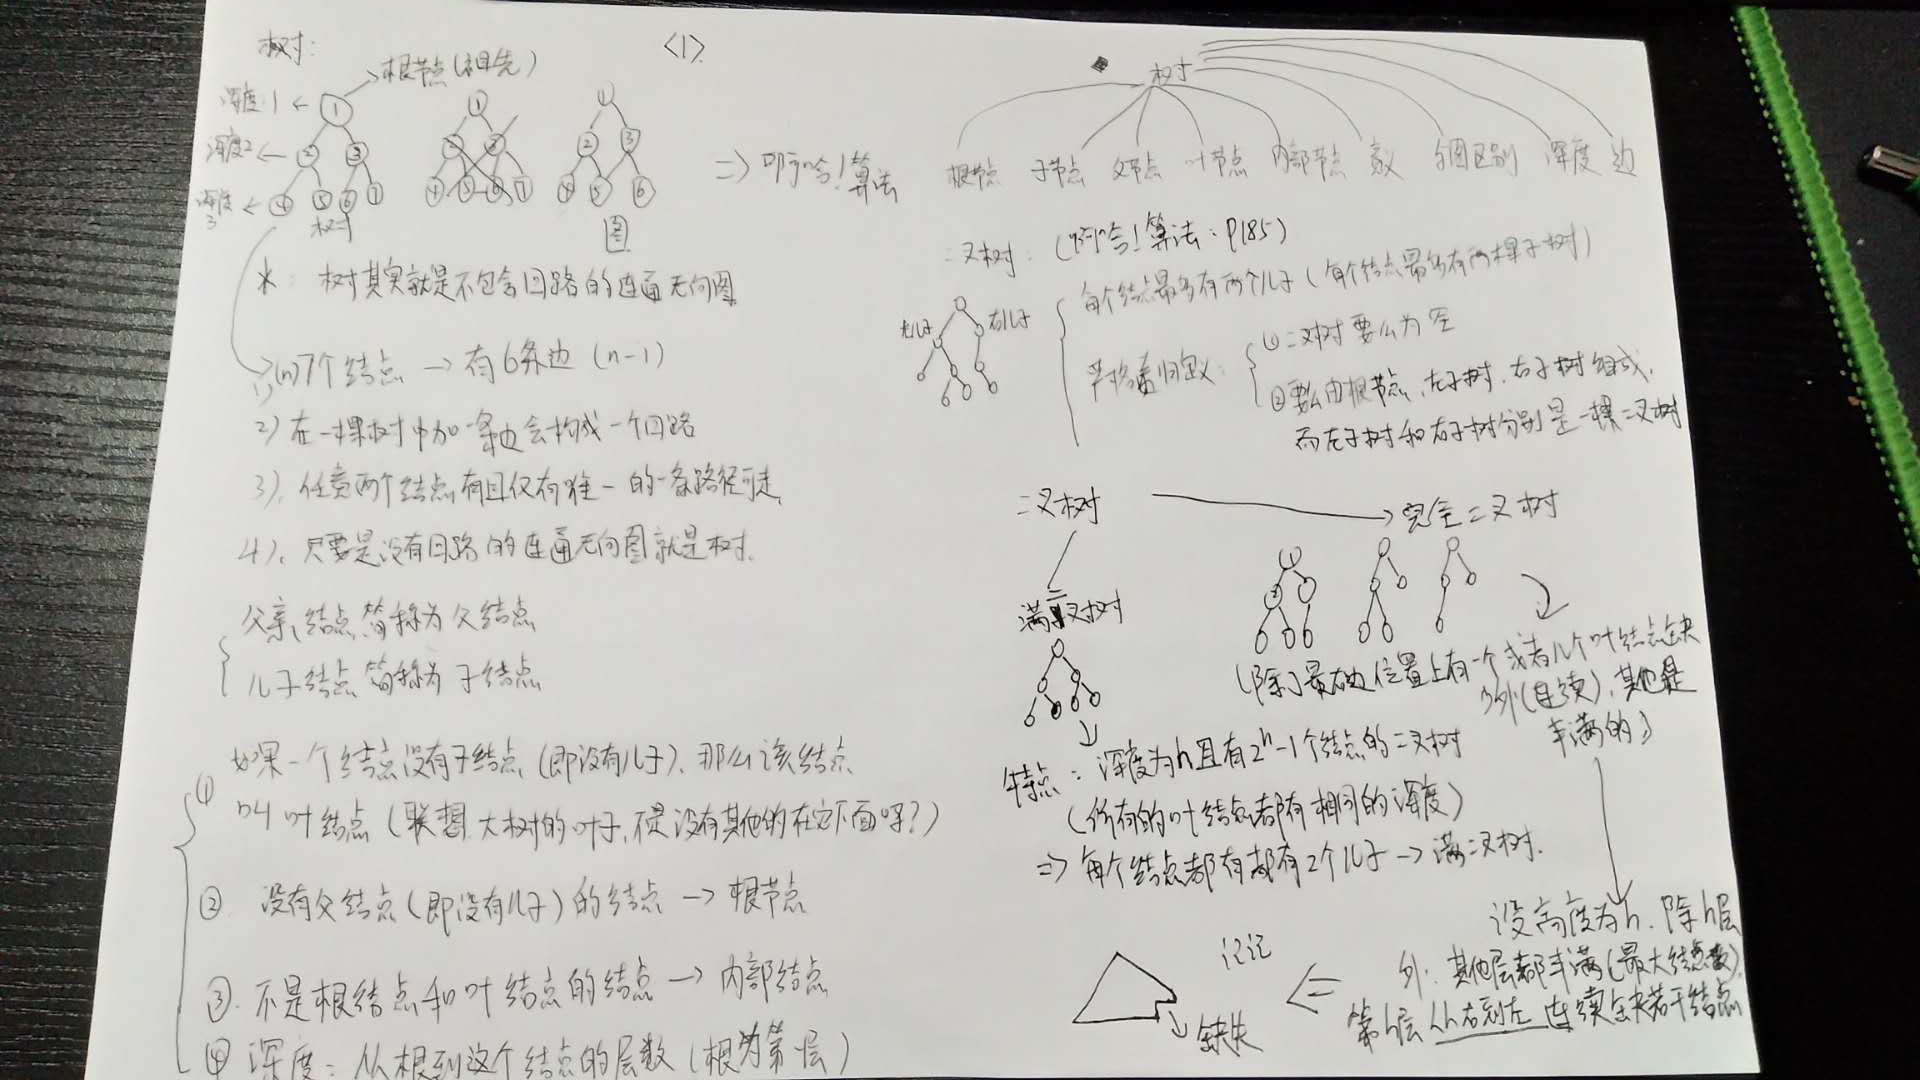 树:
<1>
根节点(祖先)
深度1 ←
深度2 ←
深度3 ←
1
2 3
4 5 6 7
树
1
2 3
4 5 6 7
1
2 3
4 5 6
图
=> 啊哈!算法
*: 树其实就是不包含回路的连通无向图
1) (n)7个结点 → 有6条边 (n-1)
2) 在一棵树中加一条边会构成一个回路
3). 任意两个结点有且仅有唯一的一条路径可走
4). 只要是没有回路的连通无向图就是树.
父亲结点简称为父结点
儿子结点简称为子结点
① 如果一个结点没有子结点 (即没有儿子). 那么该结点
叫叶结点 (联想大树的叶子,不是没有其他的在它下面呀?)
② 没有父结点 (即没有儿子) 的结点 → 根节点
③. 不是根结点和叶结点的结点 → 内部结点
④ 深度: 从根到这个结点的层数 (根为第一层)
树
根节点 子节点 父节点 叶节点 内部节点 定义 与图区别 深度 边
二叉树: (啊哈!算法: P185)
左儿子 右儿子
每个结点最多有两个儿子 (每个结点最多有两棵子树)
严格递归定义:
①二叉树要么为空
②要么由根节点、左子树、右子树组成,
而左子树和右子树分别是一棵二叉树
二叉树 → 完全二叉树
满二叉树
(除了最右边位置上有一个或者几个叶结点缺
少外(连续), 其他是
丰满的)
特点: 深度为h且有2^h-1个结点的二叉树
(所有的叶结点都有相同的深度)
=> 每个结点都有都有2个儿子 → 满二叉树.
设高度为h. 除h层
外. 其他层都丰满(最大结点数),
第h层从右到左连续缺若干结点
记记
缺失